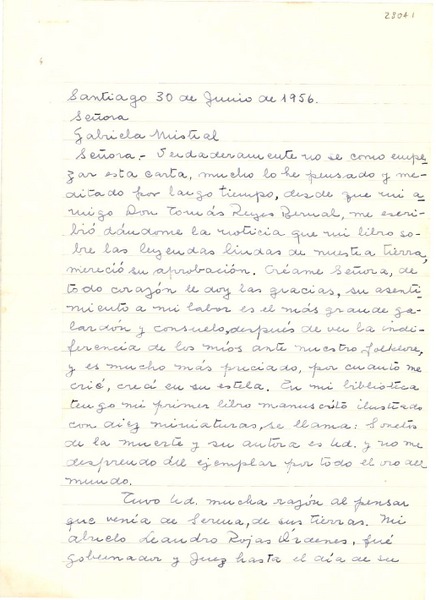 28041
Santiago 30 de Junio de 1956.
Señora
Gabriela Mistral
Señora.- Verdaderamente no se como empe-
zar esta carta, mucho lo he pensado y me-
ditado por largo tiempo, desde que mi a-
migo Don Tomás Reyes Bernal, me escri-
bió dándome la noticia que mi libro so-
bre las leyendas lindas de nuestra tierra,
mereció su aprobación. Créame Señora, de
todo corazón le doy las gracias, su asenti-
miento a mi labor es el más grande ga-
lardón y consuelo, después de ver la indi-
ferencia de los míos ante nuestro folklore,
y es mucho más preciado, por cuanto me
crié, crecí en su estela. En mi biblioteca
tengo mi primer libro manuscrito ilustrado
con diez miniaturas, se llama: Sonetos
de la muerte y su autora es Ud. y no me
desprendo del ejemplar por todo el oro del
mundo.
Tuvo Ud. mucha razón al pensar
que venía de Serena, de sus tierras. Mi
abuelo Leandro Rojas Ordenes, fué
gobernador y Juez hasta el día de su